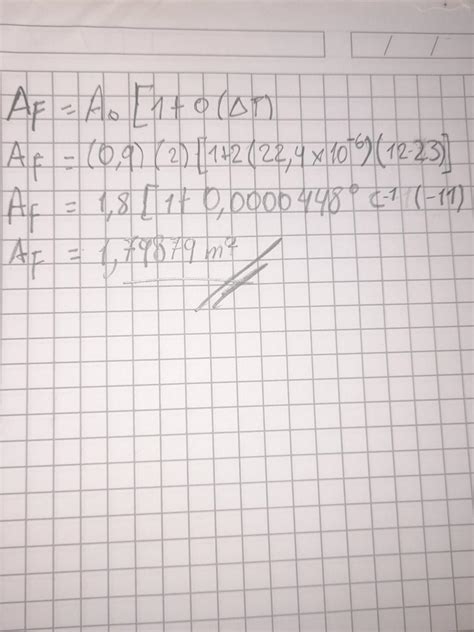 / /
AF = A0 [1+σ(ΔT)
AF = (0,9) (2) [1+2(22,4x10⁻⁶)(12-23)]
AF = 1,8 [1+ 0,0000448° c-1 (-11)
AF = 1,79879 m²